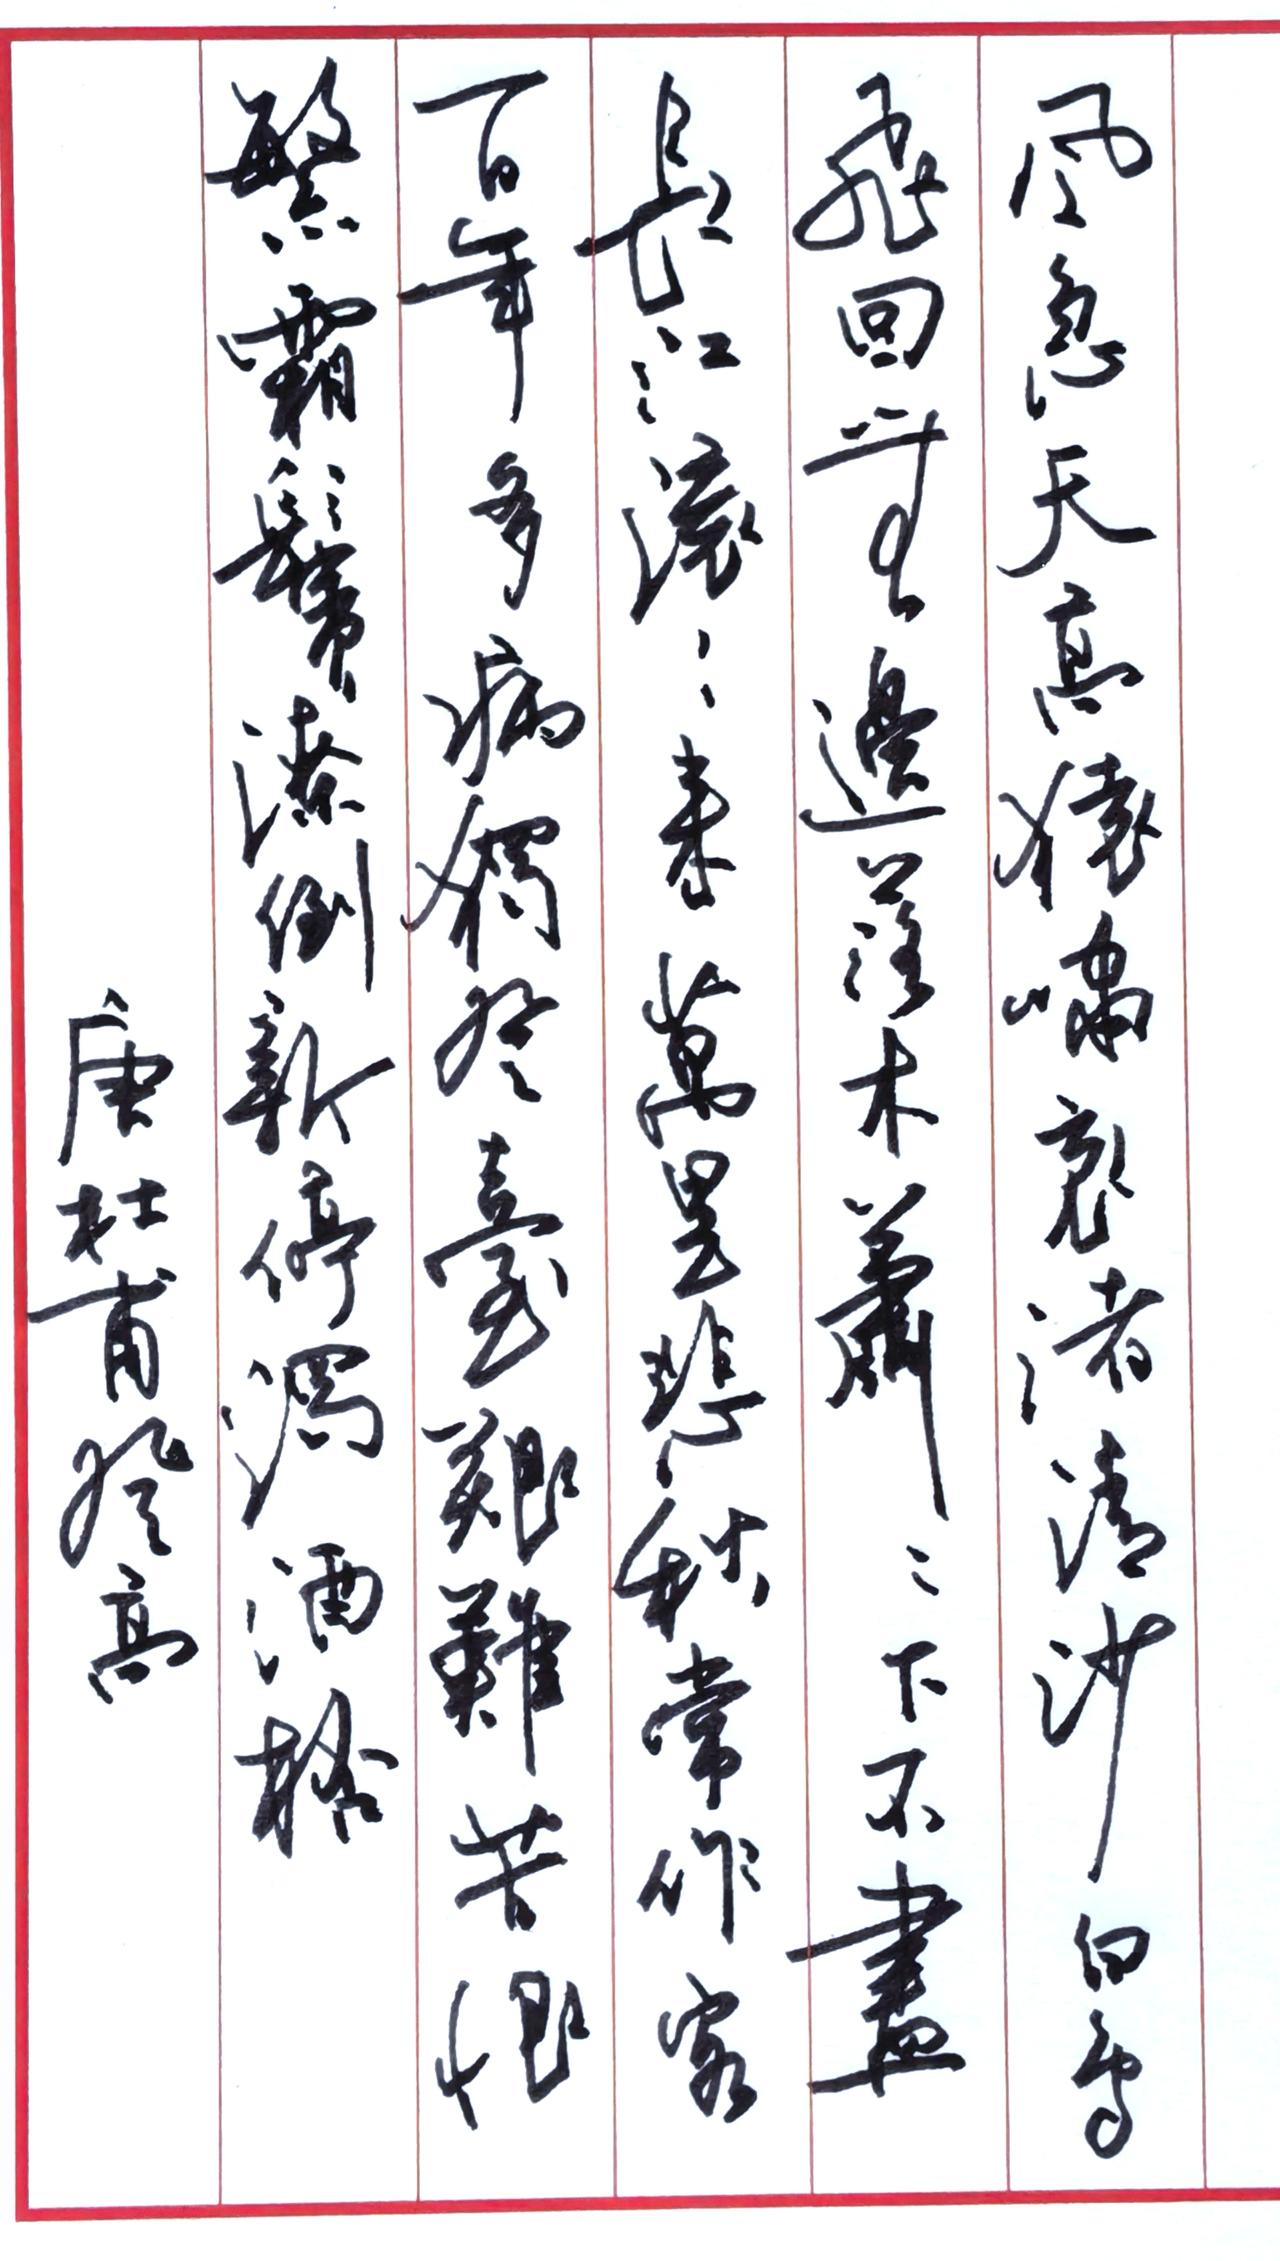 风急天高猿嘯哀渚清沙白鳥
飛回無邊落木蕭〻下不盡
長江滚〻来萬里悲秋常作客
百年多病獨登臺艱難苦恨
繁霜鬢潦倒新停濁酒杯
唐杜甫登高